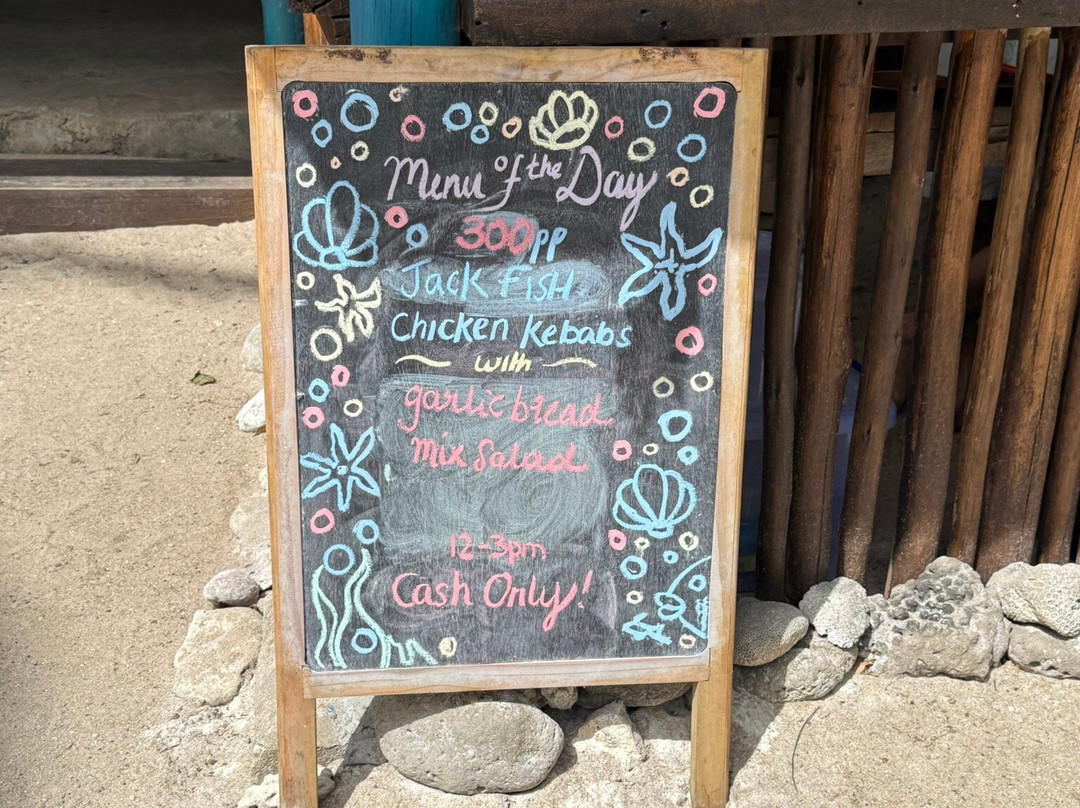 Menu of the Day
300pp
Jack Fish
Chicken Kebabs
with
garlic bread
Mix Salad
12-3pm
Cash Only!